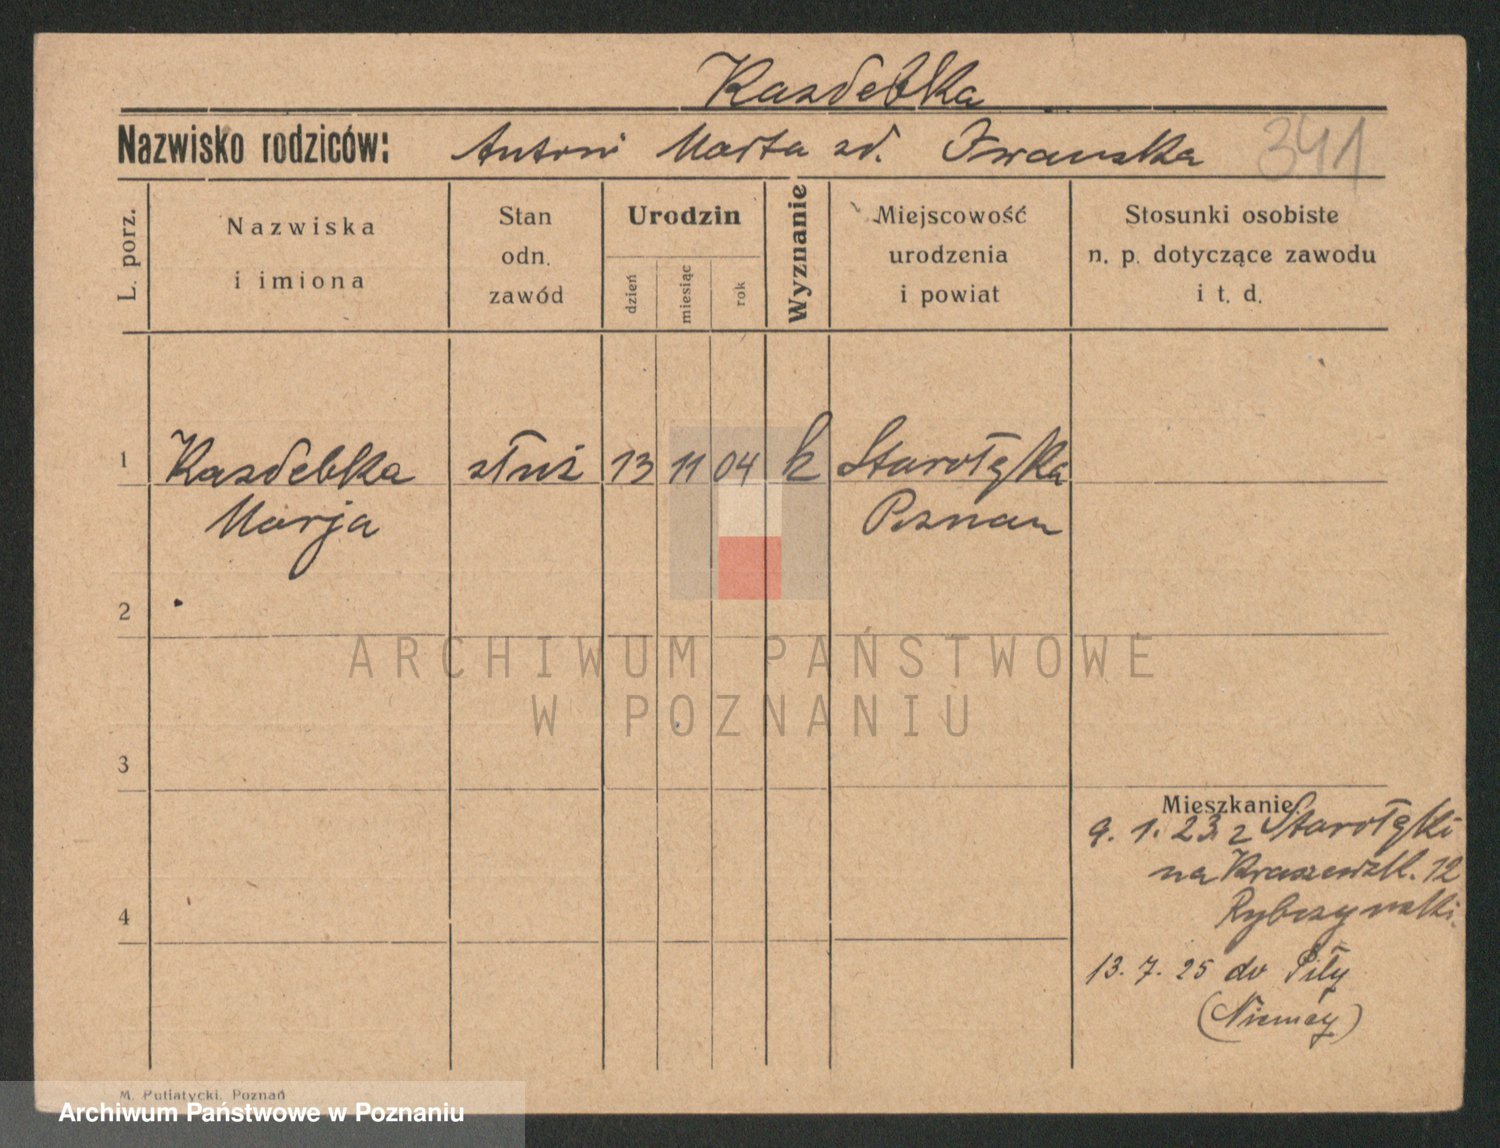 Kazdebka
Nazwisko rodziców: Antoni Marta zd. Iwańska 341
L. porz.
Nazwiska i imiona
Stan odn. zawód
Urodzin
dzień
miesiąc
rok
Wyznanie
Miejscowość urodzenia i powiat
Stosunki osobiste n. p. dotyczące zawodu i t. d.
1 Kazdebka służ 13 11 04 k Starołęka
Marja Poznan
2
3
4
Mieszkanie
9. 1. 23. z Starołęki
na Kraszewsk. 12
Rybczynski.
13. 7. 25 do Piły
(Niemcy)
ARCHIWUM PAŃSTWOWE
W POZNANIU
M. Putiatycki, Poznań
Archiwum Państwowe w Poznaniu